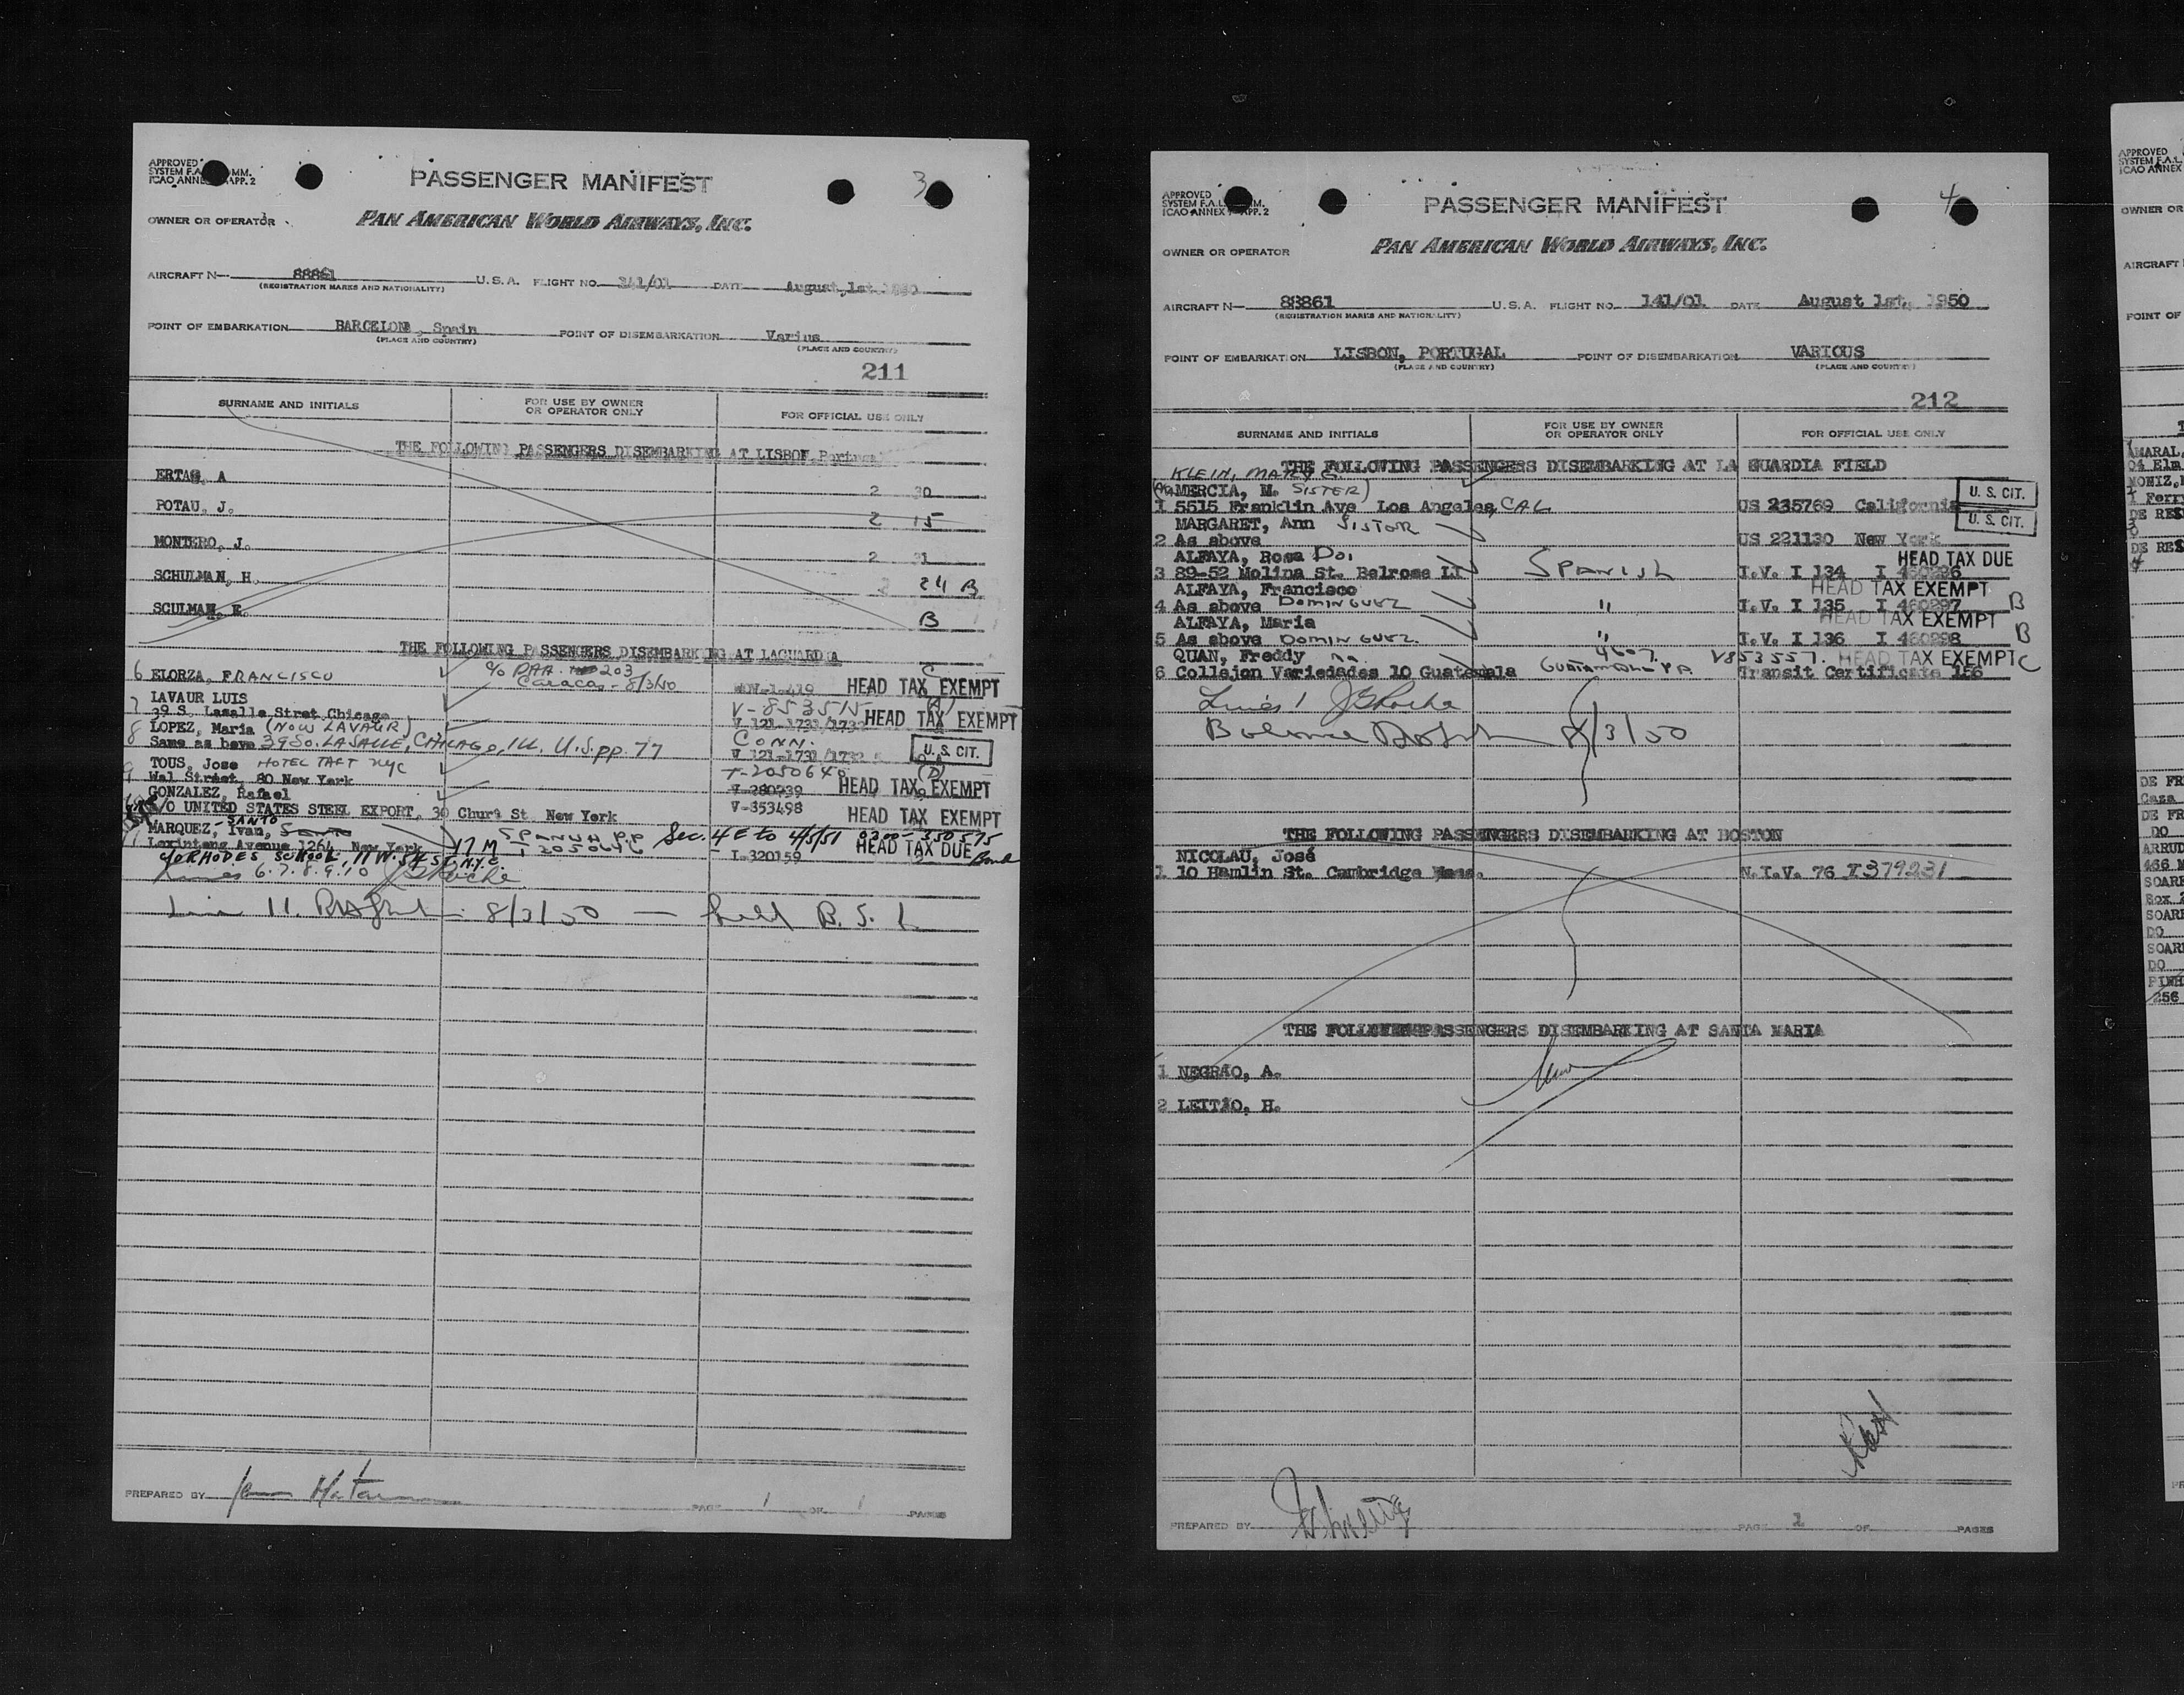 APPROVED
SYSTEM F.A.L. COMM.
ICAO ANNEX APP. 2
PASSENGER MANIFEST
3
OWNER OR OPERATOR
PAN AMERICAN WORLD AIRWAYS, INC.
AIRCRAFT N— 88861 U. S. A. FLIGHT NO. 141/01 DATE August, 1st, 1950
(REGISTRATION MARKS AND NATIONALITY)
POINT OF EMBARKATION BARCELONA, Spain POINT OF DISEMBARKATION Varius
(PLACE AND COUNTRY) (PLACE AND COUNTRY)
211
SURNAME AND INITIALS FOR USE BY OWNER OR OPERATOR ONLY FOR OFFICIAL USE ONLY
THE FOLLOWING PASSENGERS DISEMBARKING AT LISBON, Portugal
ERTAG, A 2 30
POTAU, J. 2 15
MONTERO, J. 2 31
SCHULMAN, H. 2 24 B
SCULMAN, E. B
THE FOLLOWING PASSENGERS DISEMBARKING AT LAGUARDIA
6 ELORZA, FRANCISCO c/o PAA 203 C
Caracas - 8/3/50 HEAD TAX EXEMPT
LAVAUR LUIS V-853515
7 39 S. Lasalle Stret Chicago V 121-1731/1732 HEAD TAX EXEMPT
LOPEZ, Maria (NOW LAVAUR) CONN.
8 Same as bove 3950. LASALLE, CHICAGO, ILL. U.S. pp. 77 V 121-1731/1732 U. S. CIT.
TOUS, Jose HOTEL TAFT NYC T-2050640 (D)
9 Wal Street, 80 New York V-280239 HEAD TAX EXEMPT
GONZALEZ, Rafael
C/O UNITED STATES STEEL EXPORT, 30 Churt St. New York V-353498 HEAD TAX EXEMPT
MARQUEZ-SANTO, Ivan, 17 M SPANISH P.P. Sec. 4 E to 4/5/51 0300-350575
11 Lexintong Avenue 1264, New York I-320159 HEAD TAX DUE Bond
c/o RHODES SCHOOL, 11 W. 54 ST. N.Y.C.
Lines 6.7.8.9.10
Line 11. 8/3/50 — held B. S. I.
PREPARED BY PAGE 1 OF 1 PAGES
APPROVED
SYSTEM F.A.L. COMM.
ICAO ANNEX APP. 2
PASSENGER MANIFEST
4
OWNER OR OPERATOR
PAN AMERICAN WORLD AIRWAYS, INC.
AIRCRAFT N— 88861 U. S. A. FLIGHT NO. 141/01 DATE August 1st, 1950
(REGISTRATION MARKS AND NATIONALITY)
POINT OF EMBARKATION LISBON, PORTUGAL POINT OF DISEMBARKATION VARIOUS
(PLACE AND COUNTRY) (PLACE AND COUNTRY)
212
SURNAME AND INITIALS FOR USE BY OWNER OR OPERATOR ONLY FOR OFFICIAL USE ONLY
THE FOLLOWING PASSENGERS DISEMBARKING AT LA GUARDIA FIELD
KLEIN, MARY C.
MERCIA, M. SISTER) U. S. CIT.
1 5515 Franklin Ave Los Angeles, CAL US 235769 California
MARGARET, Ann SISTOR U. S. CIT.
2 As above US 221130 New York
ALFAYA, Rosa HEAD TAX DUE
3 89-52 Molina St. Belrose LI SPANISH I.V. I 134 I 460296
ALFAYA, Francisco HEAD TAX EXEMPT
4 As above DOMINGUEZ " I.V. I 135 I 460297 B
ALFAYA, Maria HEAD TAX EXEMPT
5 As above DOMINGUEZ " I.V. I 136 I 460298 B
QUAN, Freddy 4607 V853557 HEAD TAX EXEMPT C
6 Collejon Variedades 10 Guatemala P.P. Transit Certificate 156
8/3/50
THE FOLLOWING PASSENGERS DISEMBARKING AT BOSTON
NICOLAU, José
1 10 Hamlin St. Cambridge Mass. N.I.V. 76 I379231
THE FOLLOWING PASSENGERS DISEMBARKING AT SANTA MARIA
1 NEGRÃO, A.
2 LEITÃO, H.
PREPARED BY PAGE 1 OF PAGES
APPROVED
SYSTEM F.A.L.
ICAO ANNEX
OWNER OR
AIRCRAFT
POINT OF
AMARAL,
04 Elm
MONIZ,
Ferry
DE RES
DE RES
DE FR
Casa
DE FR
DO
ARRUD
466 M
SOARE
Box 2
SOARE
DO
SOARE
DO
PINH
256